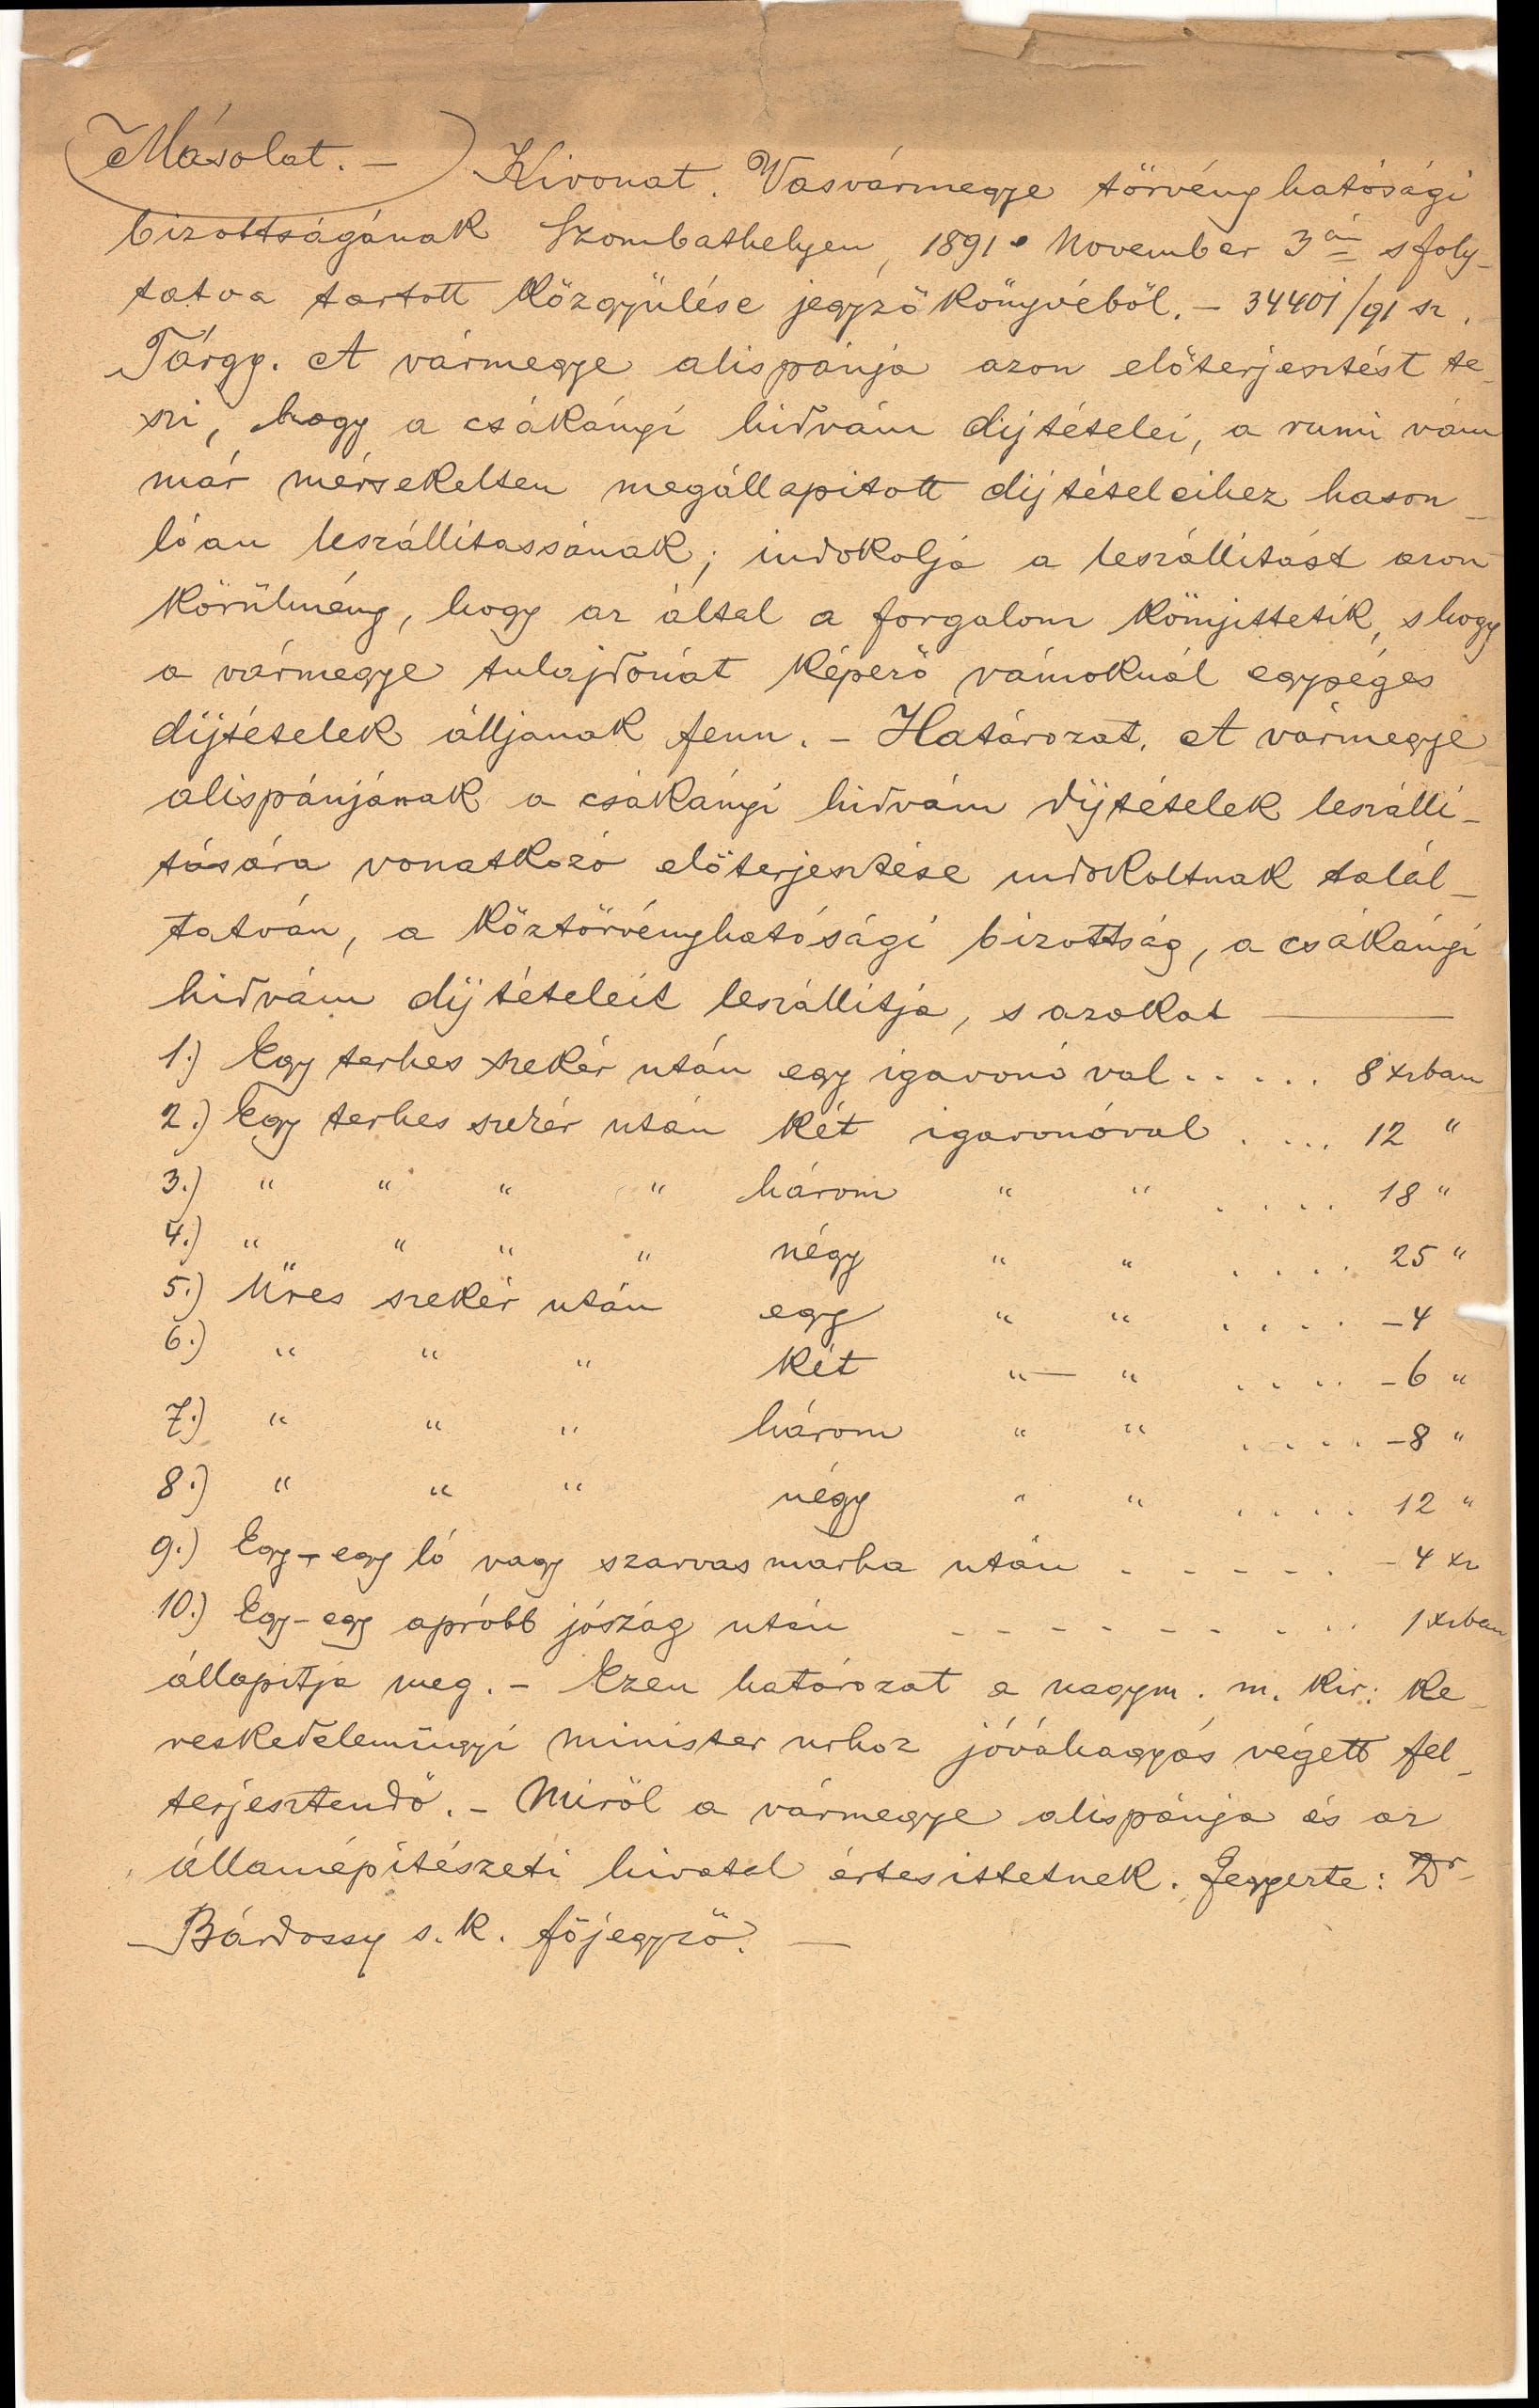 Másolat. — Kivonat. Vasvármegye törvényhatósági
bizottságának Szombathelyen, 1891. November 3án s foly-
tatva tartott közgyülése jegyzőkönyvéből. — 34401/91 sz.
Tárgy. A vármegye alispánja azon előterjesztést te-
szi, hogy a csákányi hidvám díjtételei, a rumi vám
már mérsekelten megállapitott díjtételeihez hason-
lóan leszállítassanak; indokolja a leszállítást azon
körülmény, hogy az által a forgalom könnyittetik, s hogy
a vármegye tulajdonát képező vámoknál egységes
díjtételek álljanak fenn. — Határozat. A vármegye
alispánjának a csákányi hidvám díjtételek leszálli-
tására vonatkozó előterjesztése indokoltnak talál-
tatván, a köztörvényhatósági bizottság, a csákányi
hidvám díjtételeit leszállítja, s azokat ———
1.) Egy terhes szekér után egy igavonó val . . . . . 8 xrban
2.) Egy terhes szekér után két igavonóval . . . . 12 "
3.) " " " " három " " . . . . 18 "
4.) " " " " négy " " . . . . 25 "
5.) Üres szekér után egy " " . . . . –4
6.) " " " két "— " . . . . –6 "
7.) " " " három " " . . . . –8 "
8.) " " " négy " " . . . . 12 "
9.) Egy-egy ló vagy szarvas marha után . - - - - . – 4 xr
10.) Egy-egy apróbb jószág után - - - - - - - . . . 1 xrban
állapitja meg. — Ezen határozat a nagym. m. kir: ke-
reskedelemügyi minister urhoz jóváhagyás végett fel-
terjesztendő. — Miről a vármegye alispánja és az
államépítészeti hivatal értesittetnek. Jegyezte: Dr
— Bárdossy s. k. főjegyző. —